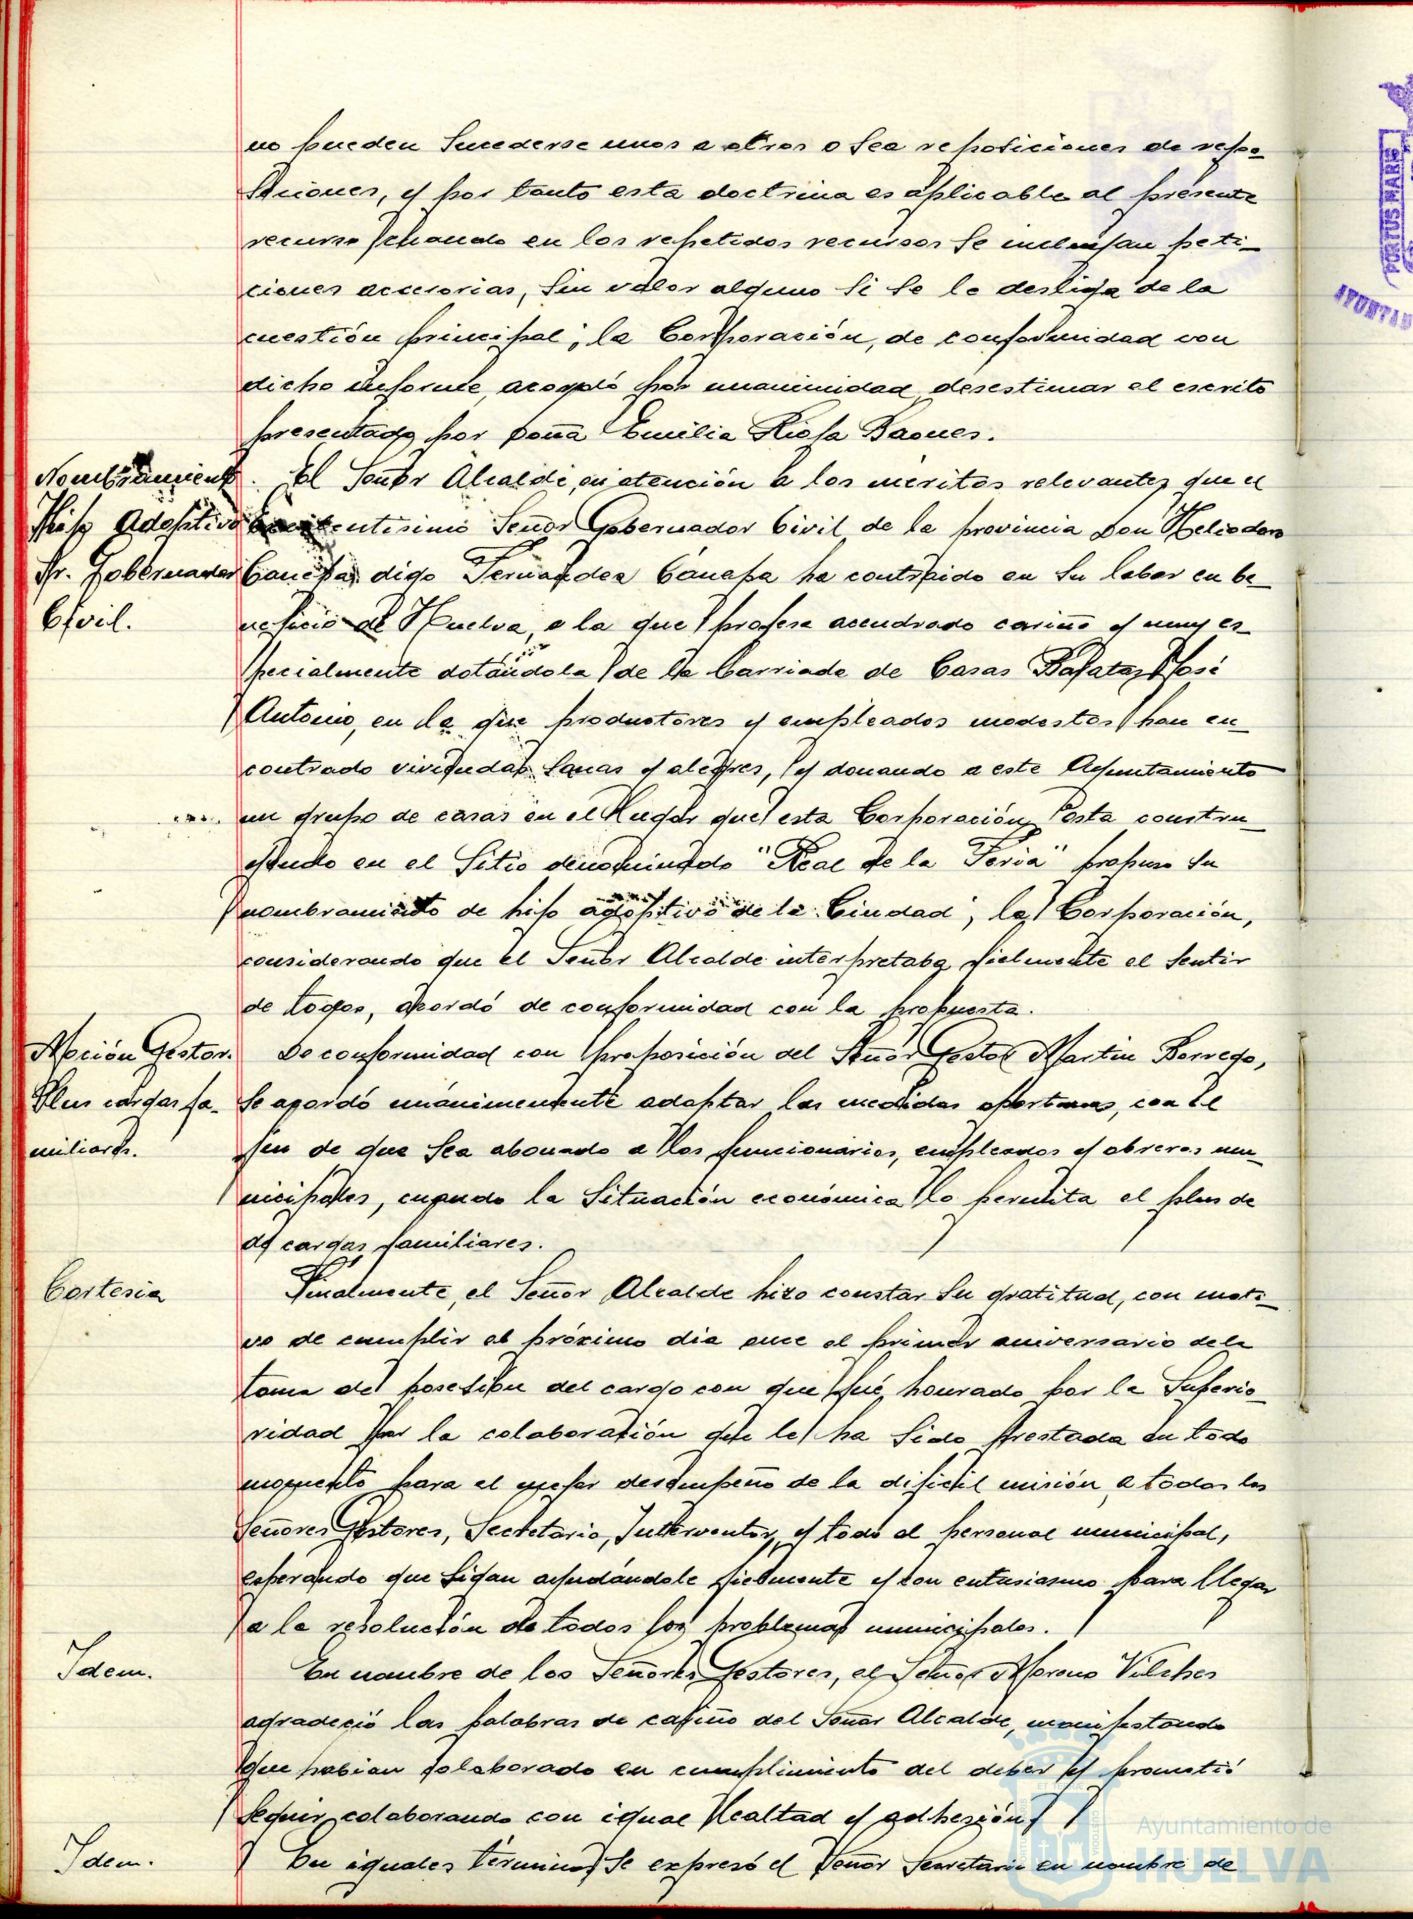 no pueden sucederse unos a otros o sea reposiciones de repo-
siciones, y por tanto esta doctrina es aplicable al presente
recurso, cuando en los repetidos recursos se incluyan peti-
ciones accesorias, sin valor alguno si se le desliga de la
cuestión principal; la Corporación, de conformidad con
dicho informe, acordó por unanimidad desestimar el escrito
presentado por Doña Emilia Rioja Baones.
Nombramiento
Hijo Adoptivo
Sr. Gobernador
Civil.
El Señor Alcalde, en atención a los méritos relevantes que el
Excelentísimo Señor Gobernador Civil de la provincia Don Heliodoro
Canepa, digo Fernandez Cánepa ha contraido en su labor en be-
neficio de Huelva, a la que profesa acendrado cariño y muy es-
pecialmente dotándola de la barriada de Casas Baratas José
Antonio, en la que productores y empleados modestos han en-
contrado viviendas sanas y alegres, y donando a este Ayuntamiento
un grupo de casas en el lugar que esta Corporación esta constru-
yendo en el sitio denominado "Real de la Feria" propuso su
nombramiento de hijo adoptivo de la Ciudad; la Corporación,
considerando que el Señor Alcalde interpretaba fielmente el sentir
de todos, acordó de conformidad con la propuesta.
Moción Gestor.
Plus cargas fa-
miliares.
De conformidad con proposición del Señor Gestor Martin Borrego,
se acordó unánimemente adoptar las medidas oportunas, con el
fin de que sea abonado a los funcionarios, empleados y obreros mu-
nicipales, cuando la situación económica lo permita el plus de
de cargas familiares.
Cortesia
Finalmente, el Señor Alcalde hizo constar su gratitud, con moti-
vo de cumplir el próximo dia once el primer aniversario de la
toma de posesión del cargo con que fué honrado por la Superio-
ridad por la colaboración que le ha sido prestada en todo
momento para el mejor desempeño de la dificil misión, a todos los
Señores Gestores, Secretario, Interventor, y todo el personal municipal,
esperando que sigan ayudándole fielmente y con entusiasmo para llegar
a la resolución de todos los problemas municipales.
Idem.
En nombre de los Señores Gestores, el Señor Moreno Vilches
agradeció las palabras de cariño del Señor Alcalde, manifestando
que habian colaborado en cumplimiento del deber y prometió
seguir colaborando con igual lealtad y adhesión.
Idem.
En iguales términos se expresó el Señor Secretario en nombre de
PORTUS MARIS
AYUNTA
Ayuntamiento de
HUELVA